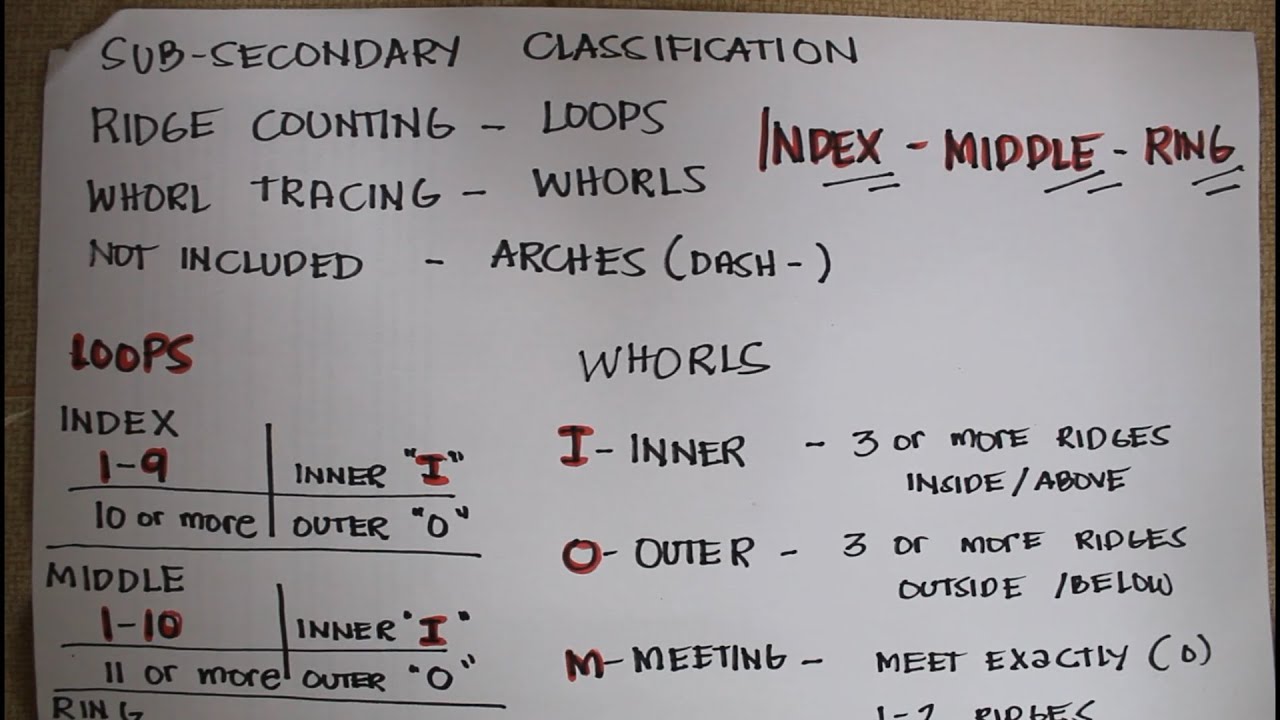 SUB-SECONDARY CLASSIFICATION
RIDGE COUNTING - LOOPS
WHORL TRACING - WHORLS
NOT INCLUDED - ARCHES (DASH - )
INDEX - MIDDLE - RING
LOOPS
INDEX
1-9 INNER "I"
10 or more OUTER "O"
MIDDLE
1-10 INNER "I"
11 or more OUTER "O"
RING
WHORLS
I - INNER - 3 or more RIDGES
INSIDE / ABOVE
O - OUTER - 3 or more RIDGES
OUTSIDE / BELOW
M - MEETING - MEET EXACTLY (0)
RIDGES